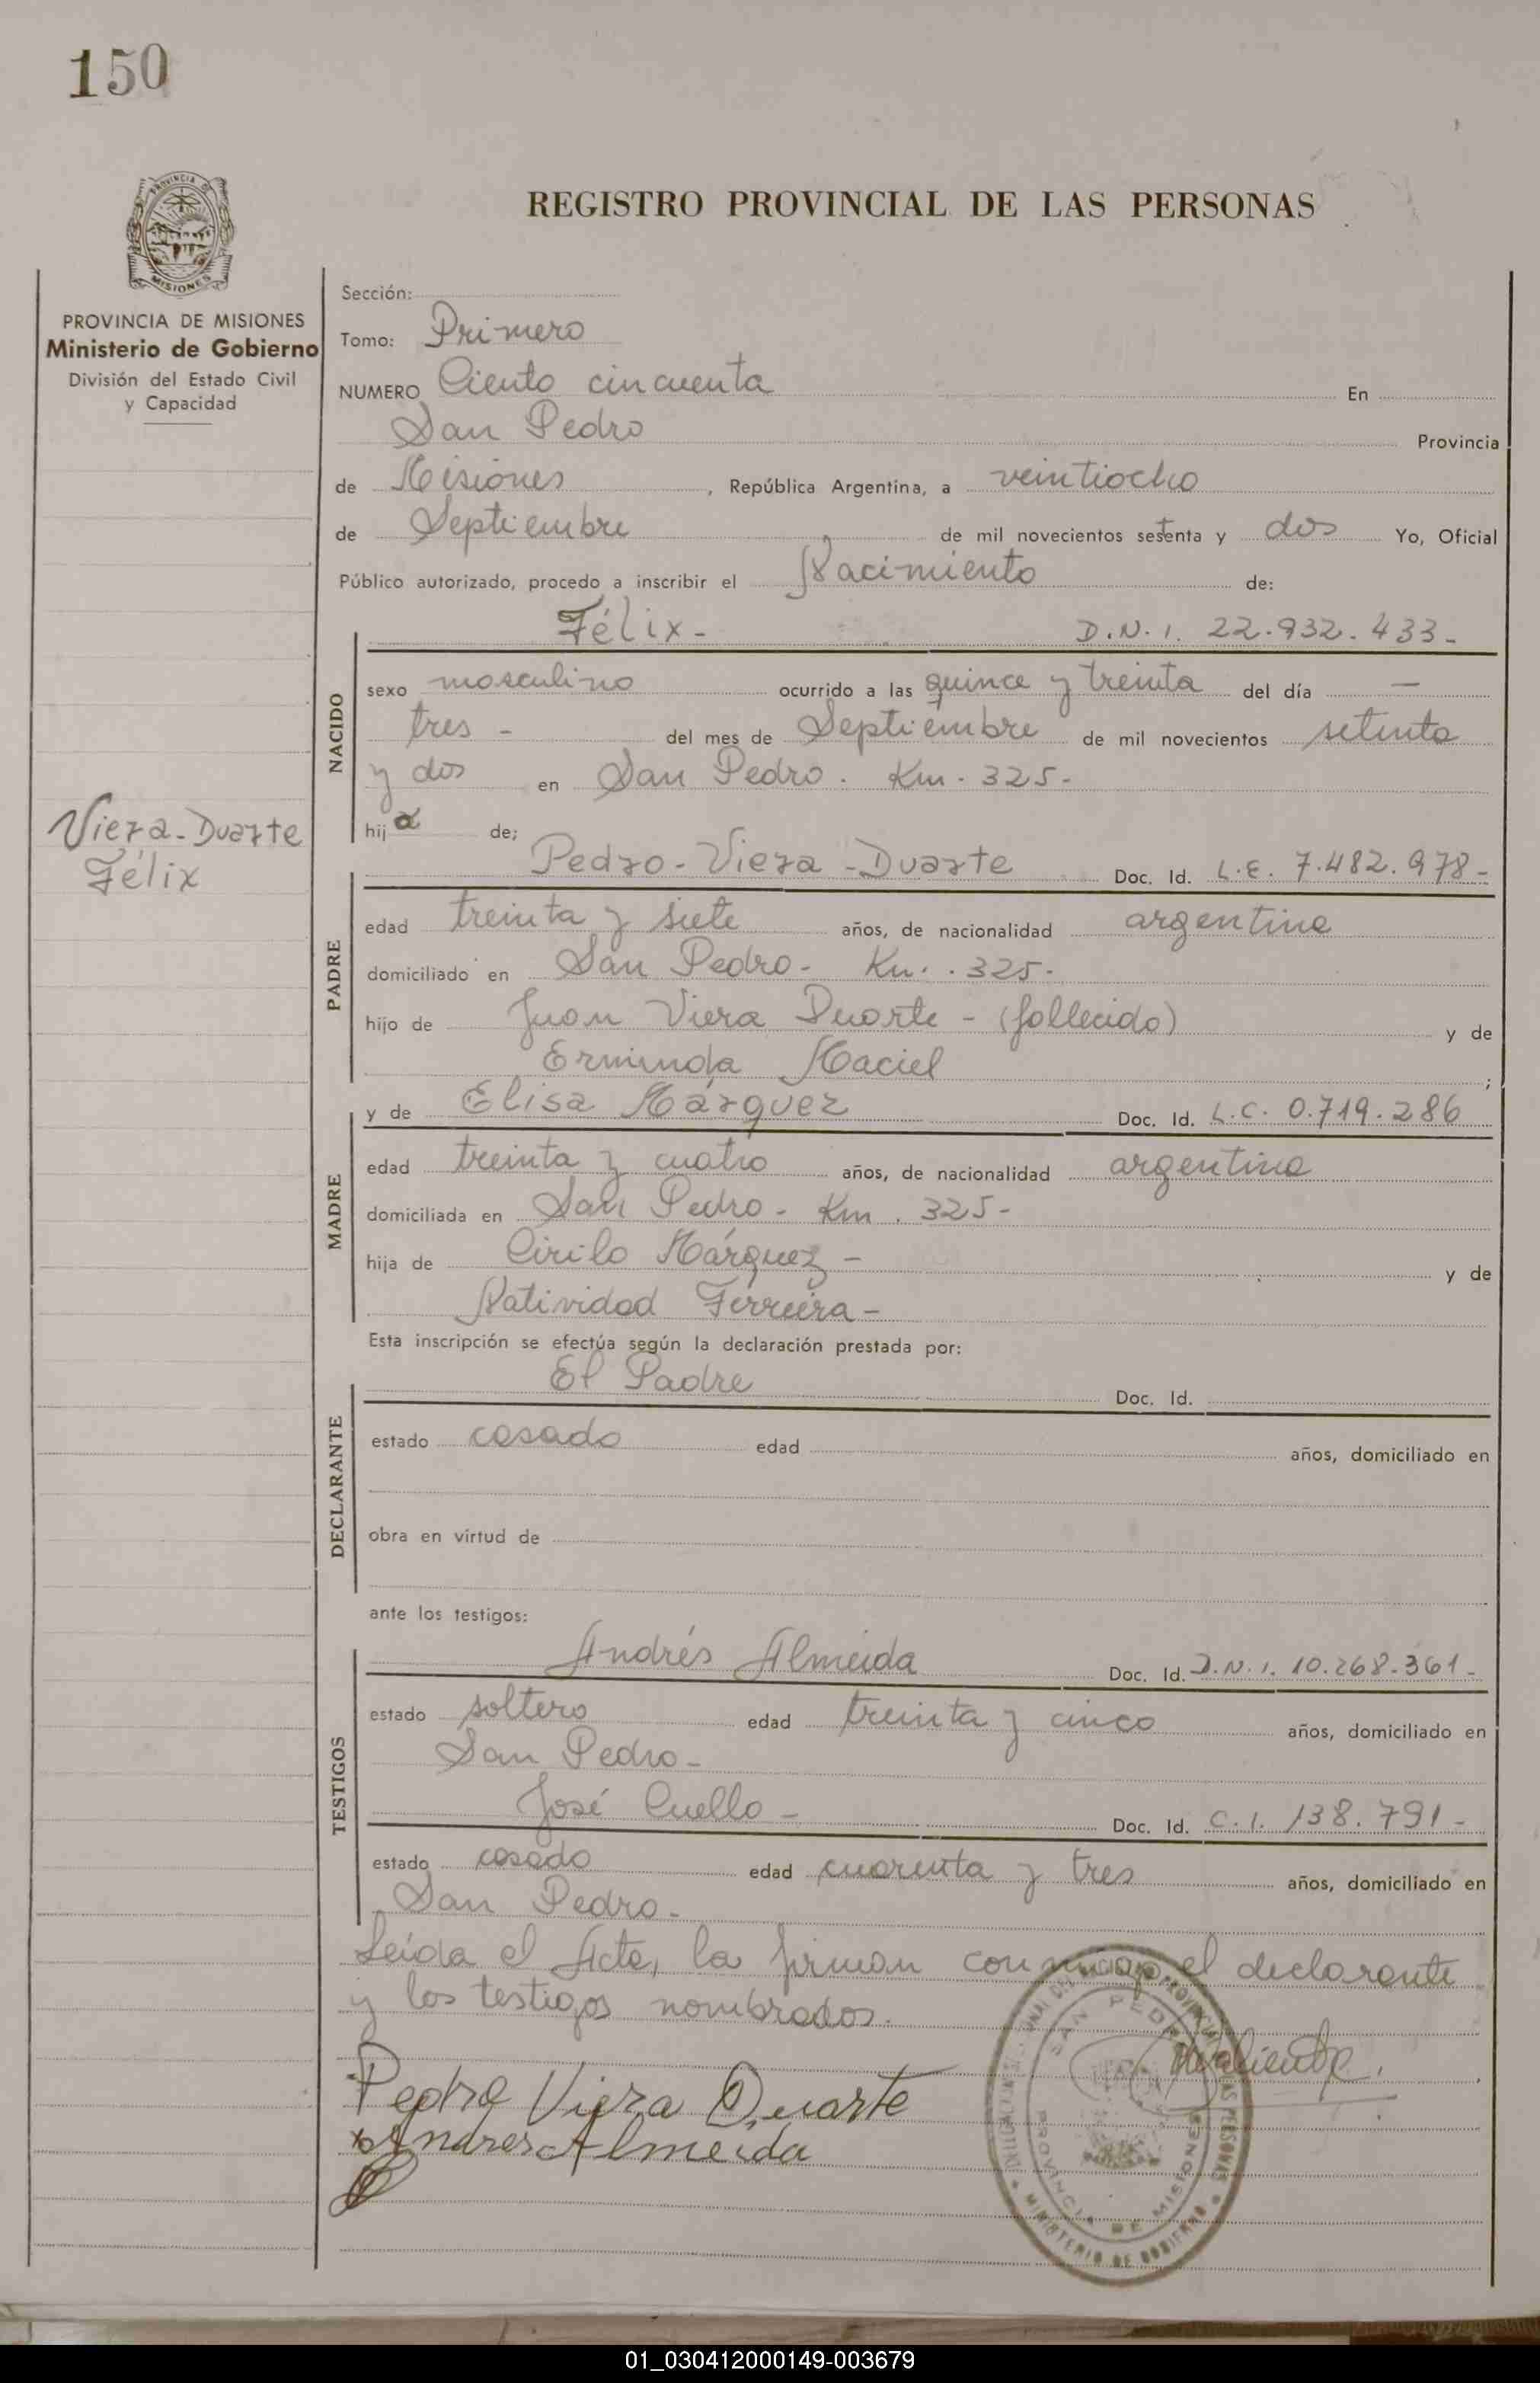 150
PROVINCIA DE
MISIONES
REGISTRO PROVINCIAL DE LAS PERSONAS
PROVINCIA DE MISIONES
Ministerio de Gobierno
División del Estado Civil
y Capacidad
Viera-Duarte
Félix
Sección:
Tomo: Primero
NUMERO Ciento cincuenta En
San Pedro Provincia
de Misiones, República Argentina, a veintiocho
de Septiembre de mil novecientos setenta y dos Yo, Oficial
Público autorizado, procedo a inscribir el Nacimiento de:
Félix- D.N.I. 22.932.433-
NACIDO
sexo masculino ocurrido a las quince y treinta del día —
tres - del mes de Septiembre de mil novecientos setenta
y dos en San Pedro. Km. 325-
hijo de;
Pedro-Viera-Duarte Doc. Id. L.E. 7.482.978-
PADRE
edad treinta y siete años, de nacionalidad argentina
domiciliado en San Pedro- Km. 325-
hijo de Juan Viera Duarte - (fallecido) y de
Erminda Maciel ;
y de Elisa Márquez Doc. Id. L.C. 0.719.286
MADRE
edad treinta y cuatro años, de nacionalidad argentina
domiciliada en San Pedro- Km. 325-
hija de Cirilo Márquez - y de
Natividad Ferreira-
Esta inscripción se efectúa según la declaración prestada por:
El Padre Doc. Id.
DECLARANTE
estado casado edad años, domiciliado en
obra en virtud de
ante los testigos:
Andrés Almeida Doc. Id. D.N.I. 10.268.361-
TESTIGOS
estado soltero edad treinta y cinco años, domiciliado en
San Pedro-
José Cuello- Doc. Id. C.I. 138.791-
estado casado edad cuarenta y tres años, domiciliado en
San Pedro-
Leída el Acta, la firman conmigo el declarante
y los testigos nombrados.
Pedro Viera Duarte
Andres Almeida
SAN PEDRO
PROVINCIA DE MISIONES
MINISTERIO DE GOBIERNO
01_030412000149-003679